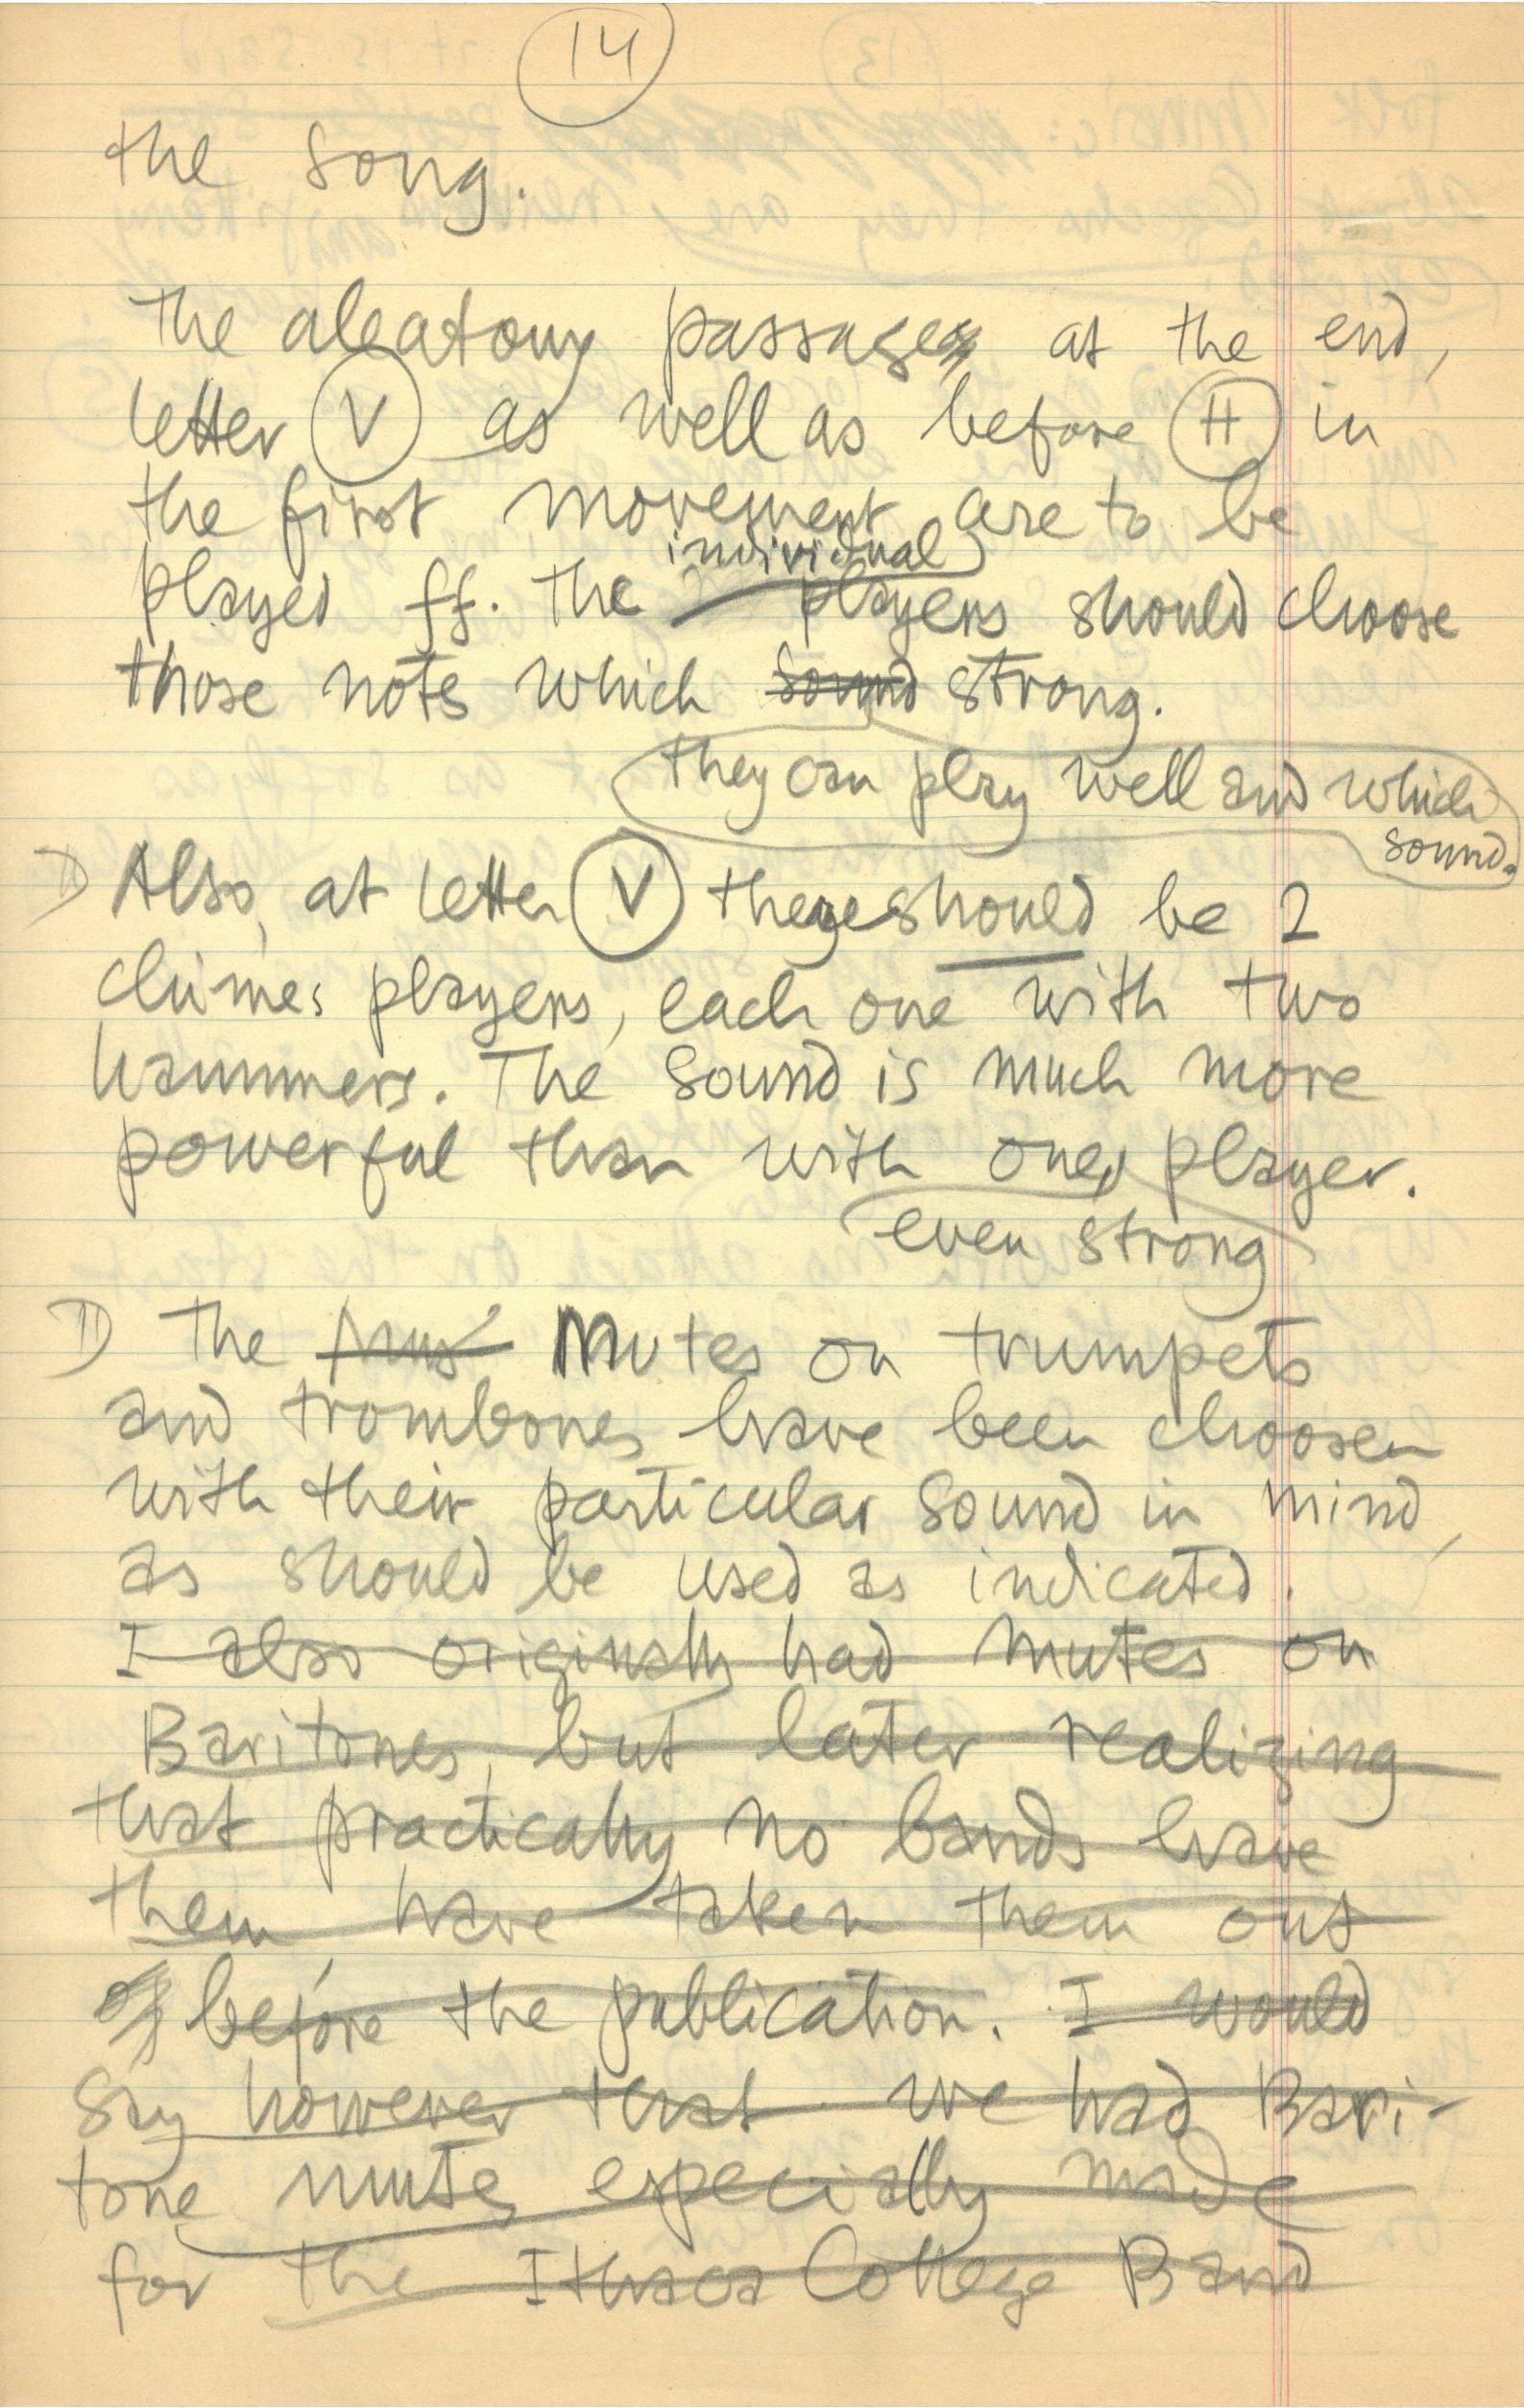 14
the song.
The aleatory passages at the end,
letter V as well as before H in
the first movement are to be
individual
played ff. The players should choose
those notes which sound strong.
they can play well and which
sound.
Also, at letter V there should be 2
chimes players, each one with two
hammers. The sound is much more
powerful than with one, player.
even strong
The Mus Mutes on trumpets
and trombones have been choosen
with their particular sound in mind,
as should be used as indicated.
I also originally had mutes on
Baritones, but later realizing
that practically no bands have
them, have taken them out
before the publication. I would
say however that we had Bari-
tone mutes especially made
for the Ithaca College Band